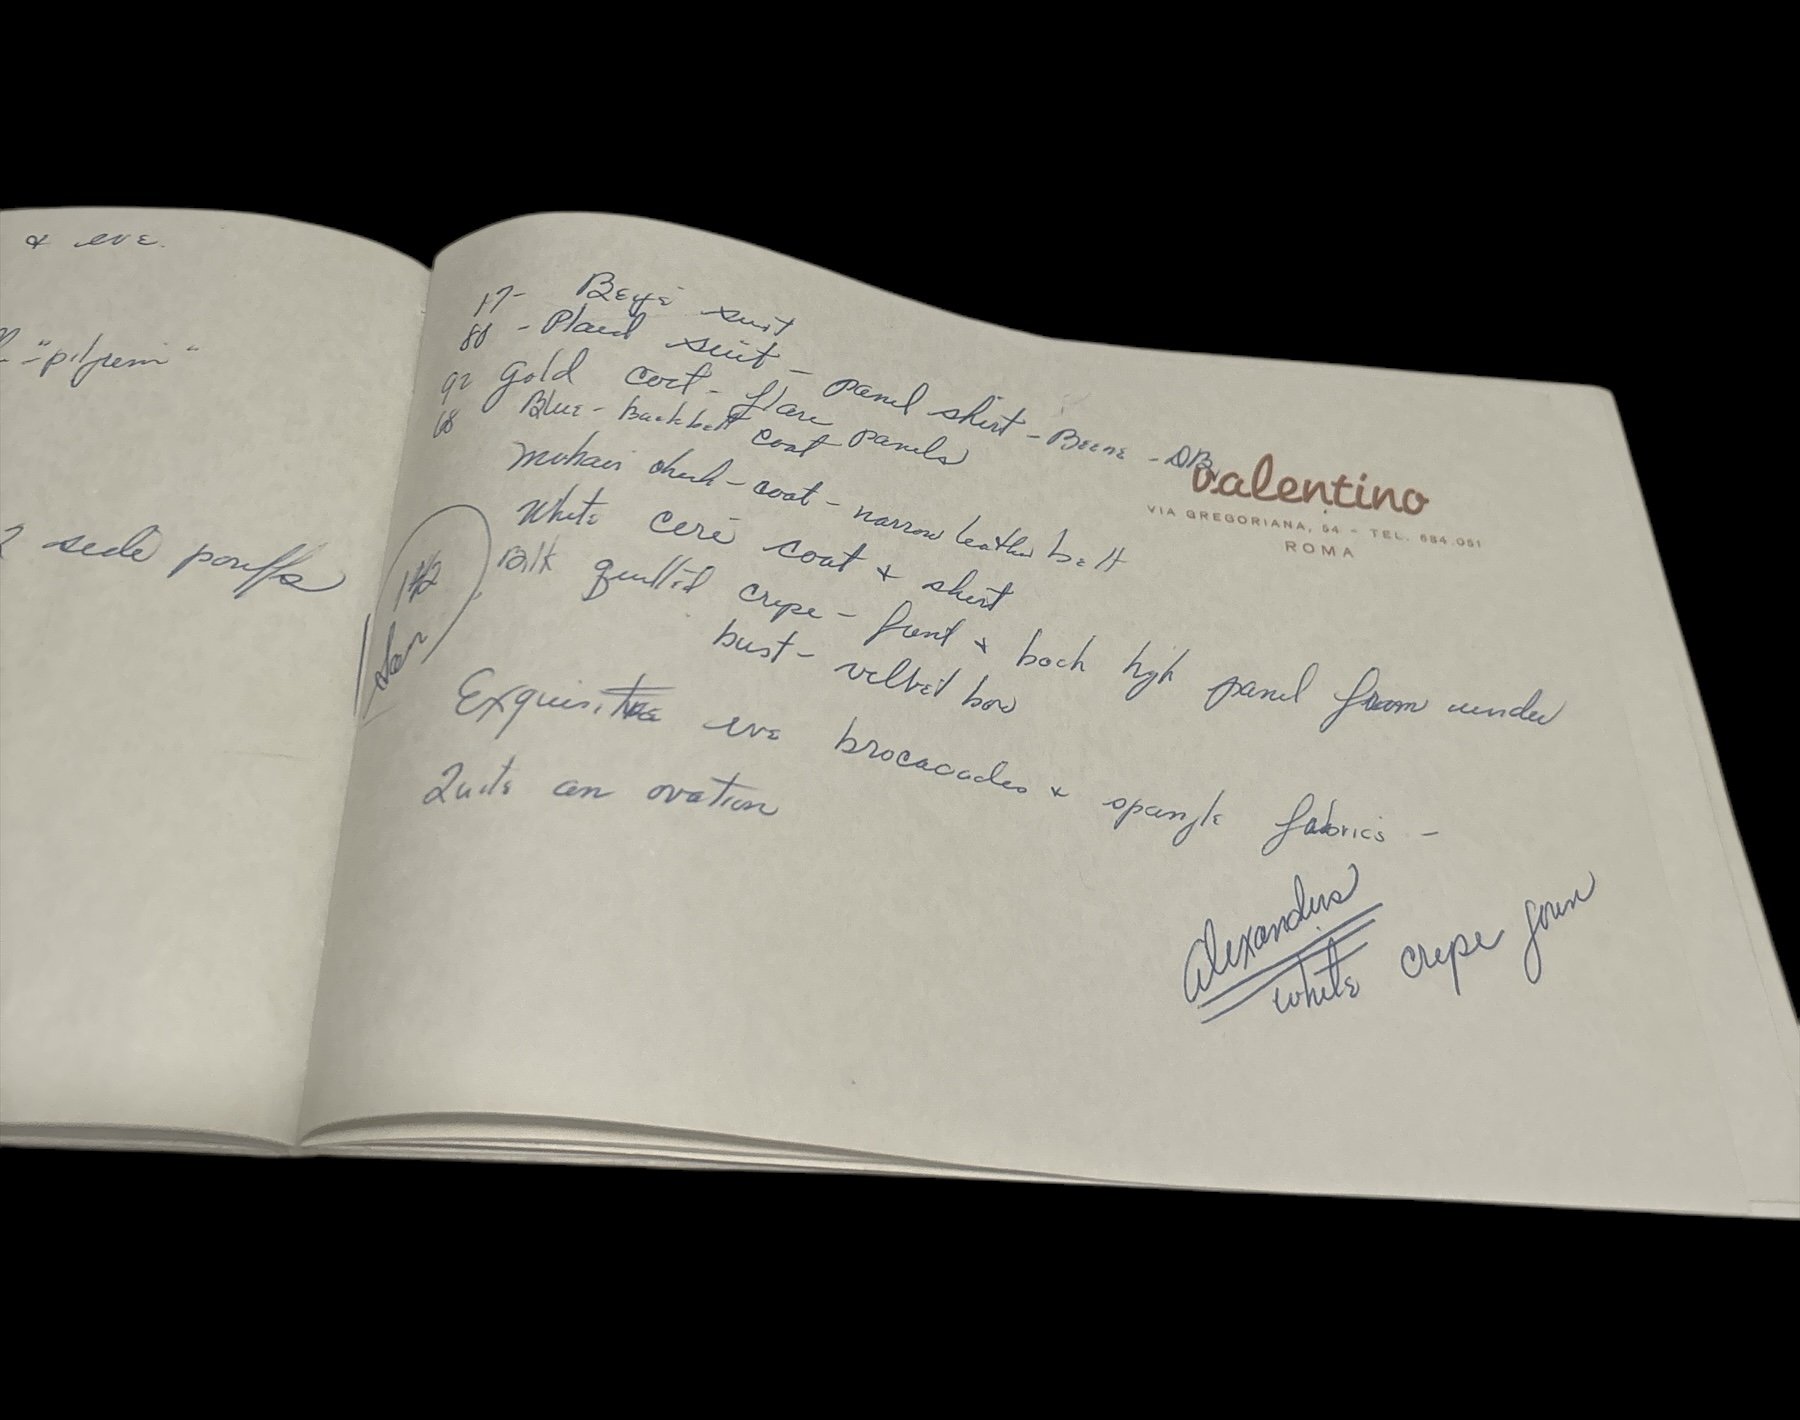 & eve.
"pilgrim"
2 side pouffs
17- Beige suit
80 - Plaid suit - panel skirt - Beene - DB
92 Gold coat - flare panels
68 Blue - backbelt coat
Mohair check - coat - narrow leather belt
White ceré coat & skirt
142 Blk quilted crepe - front & back high panel from under
bust - velvet bow
Exquisite eve brocacades & spangle fabrics -
Quite an ovation
valentino
VIA GREGORIANA, 54 - TEL. 684.051
ROMA
Alexanders
white crepe gown